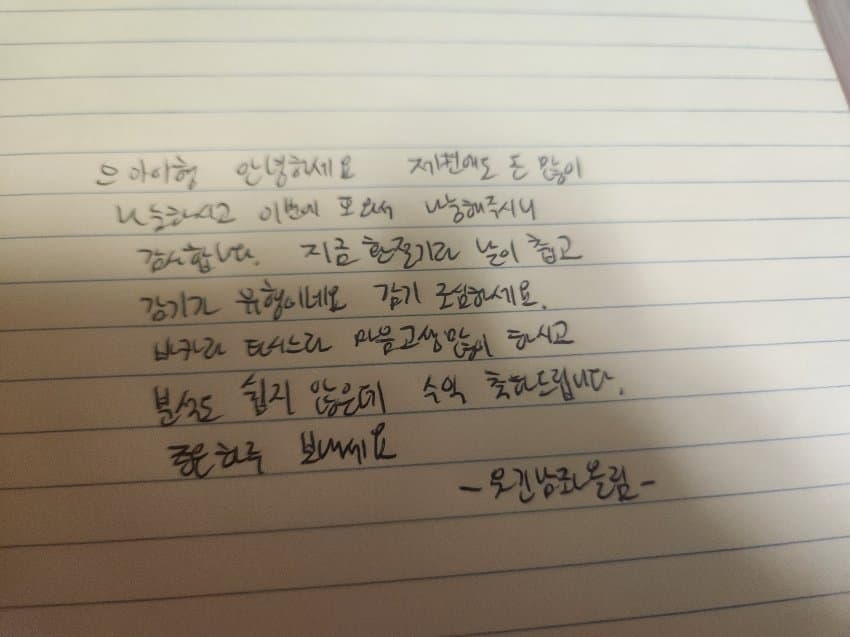 으아이형 안녕하세요 저번에도 돈 많이
나눔하시고 이번에 또 와서 나눔해주시니
감사합니다. 지금 환절기라 날이 춥고
감기가 유행이네요 감기 조심하세요.
바카라 하느라 마음고생 많이 하시고
분석도 쉽지 않은데 수익 축하드립니다.
좋은하루 보내세요
-웃긴남좌올림-